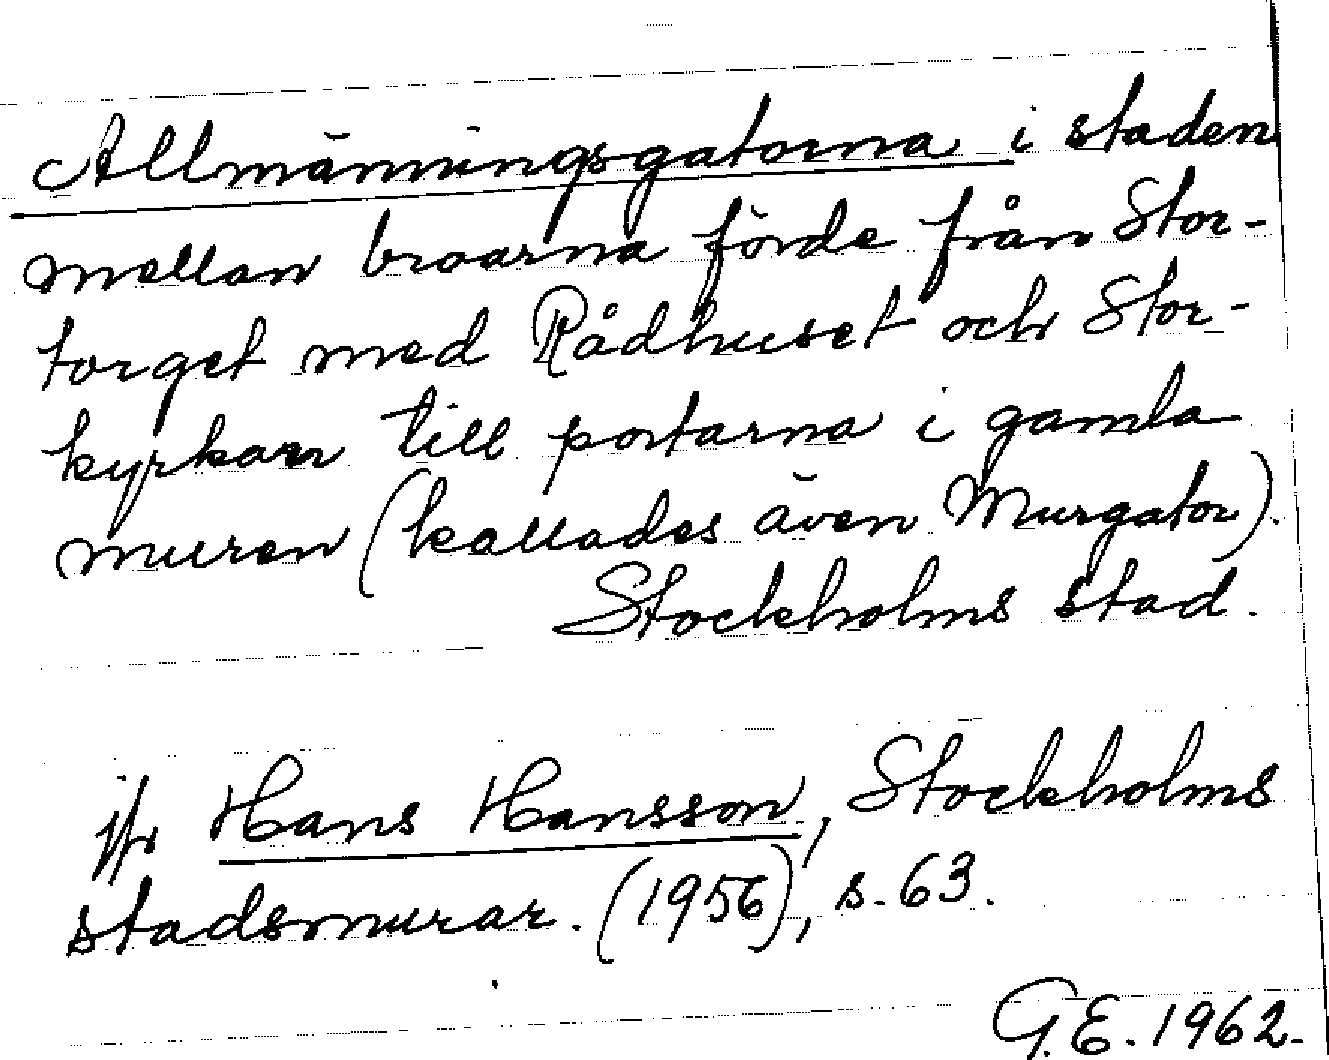 Allmänningsgatorna i staden
mellan broarna förde från Stor-
torget med Rådhuset och Stor-
kyrkan till portarna i gamla
muren (kallades även Murgator).
Stockholms stad.
jfr Hans Hansson, Stockholms
stadsmurar. (1956), s. 63.
G.E. 1962.